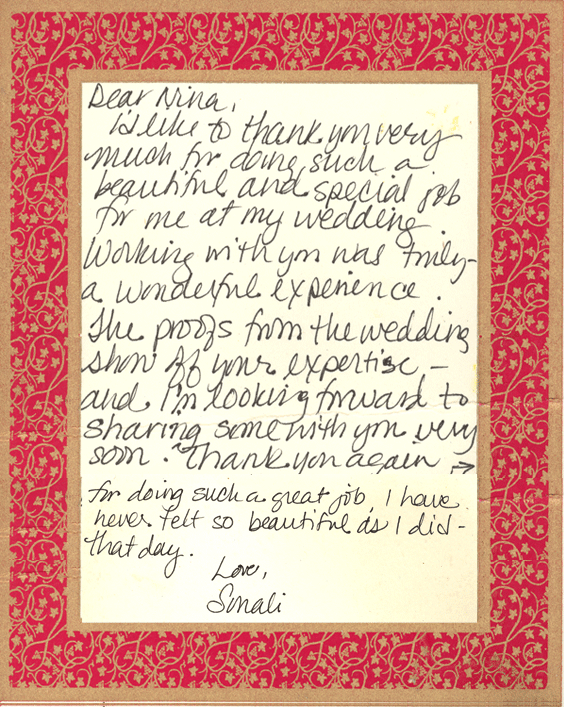 Dear Nina,
I'd like to thank you very
much for doing such a
beautiful and special job
for me at my wedding.
Working with you was truly
a wonderful experience.
The proofs from the wedding
show off your expertise -
and I'm looking forward to
sharing some with you very
soon. Thank you again →
for doing such a great job, I have
never felt so beautiful as I did -
that day.
Love,
Sonali